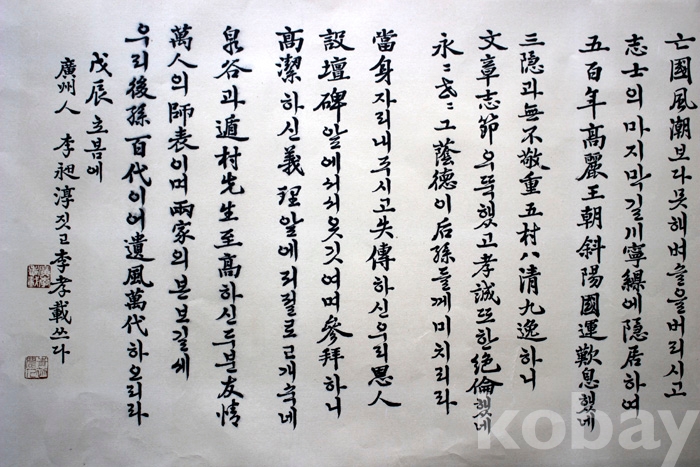 亡國風潮보다못해벼슬을버리시고
志士의마지막길川寧縣에隱居하여
五百年高麗王朝斜陽國運歎息했네
三隱과無不敬重五村八淸九逸하니
文章志節우뚝했고孝誠또한絶倫했네
永〻世〻그蔭德이后孫들께미치리라
當身자리내주시고失傳하신우리恩人
設壇碑앞에서서옷깃여며參拜하니
高潔하신義理앞에저절로고개숙네
泉谷과遁村先生至高하신두분友情
萬人의師表이며兩家의본보길세
우리後孫百代이어遺風萬代하오리라
戊辰초봄에
廣州人 李昶淳짓고李孝載쓰다
kobay